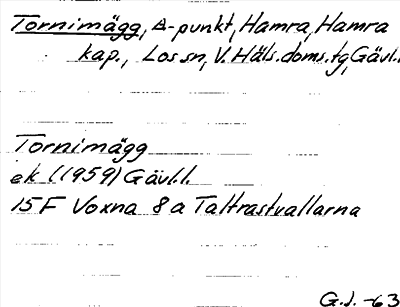 Tornimägg, Δ-punkt, Hamra, Hamra
kap., Los sn, V. Häls. doms.tg, Gävl.l.
Tornimägg
ek (1959) Gävl.l.
15F Voxna 8a Taltrastvallarna
G.J. -63